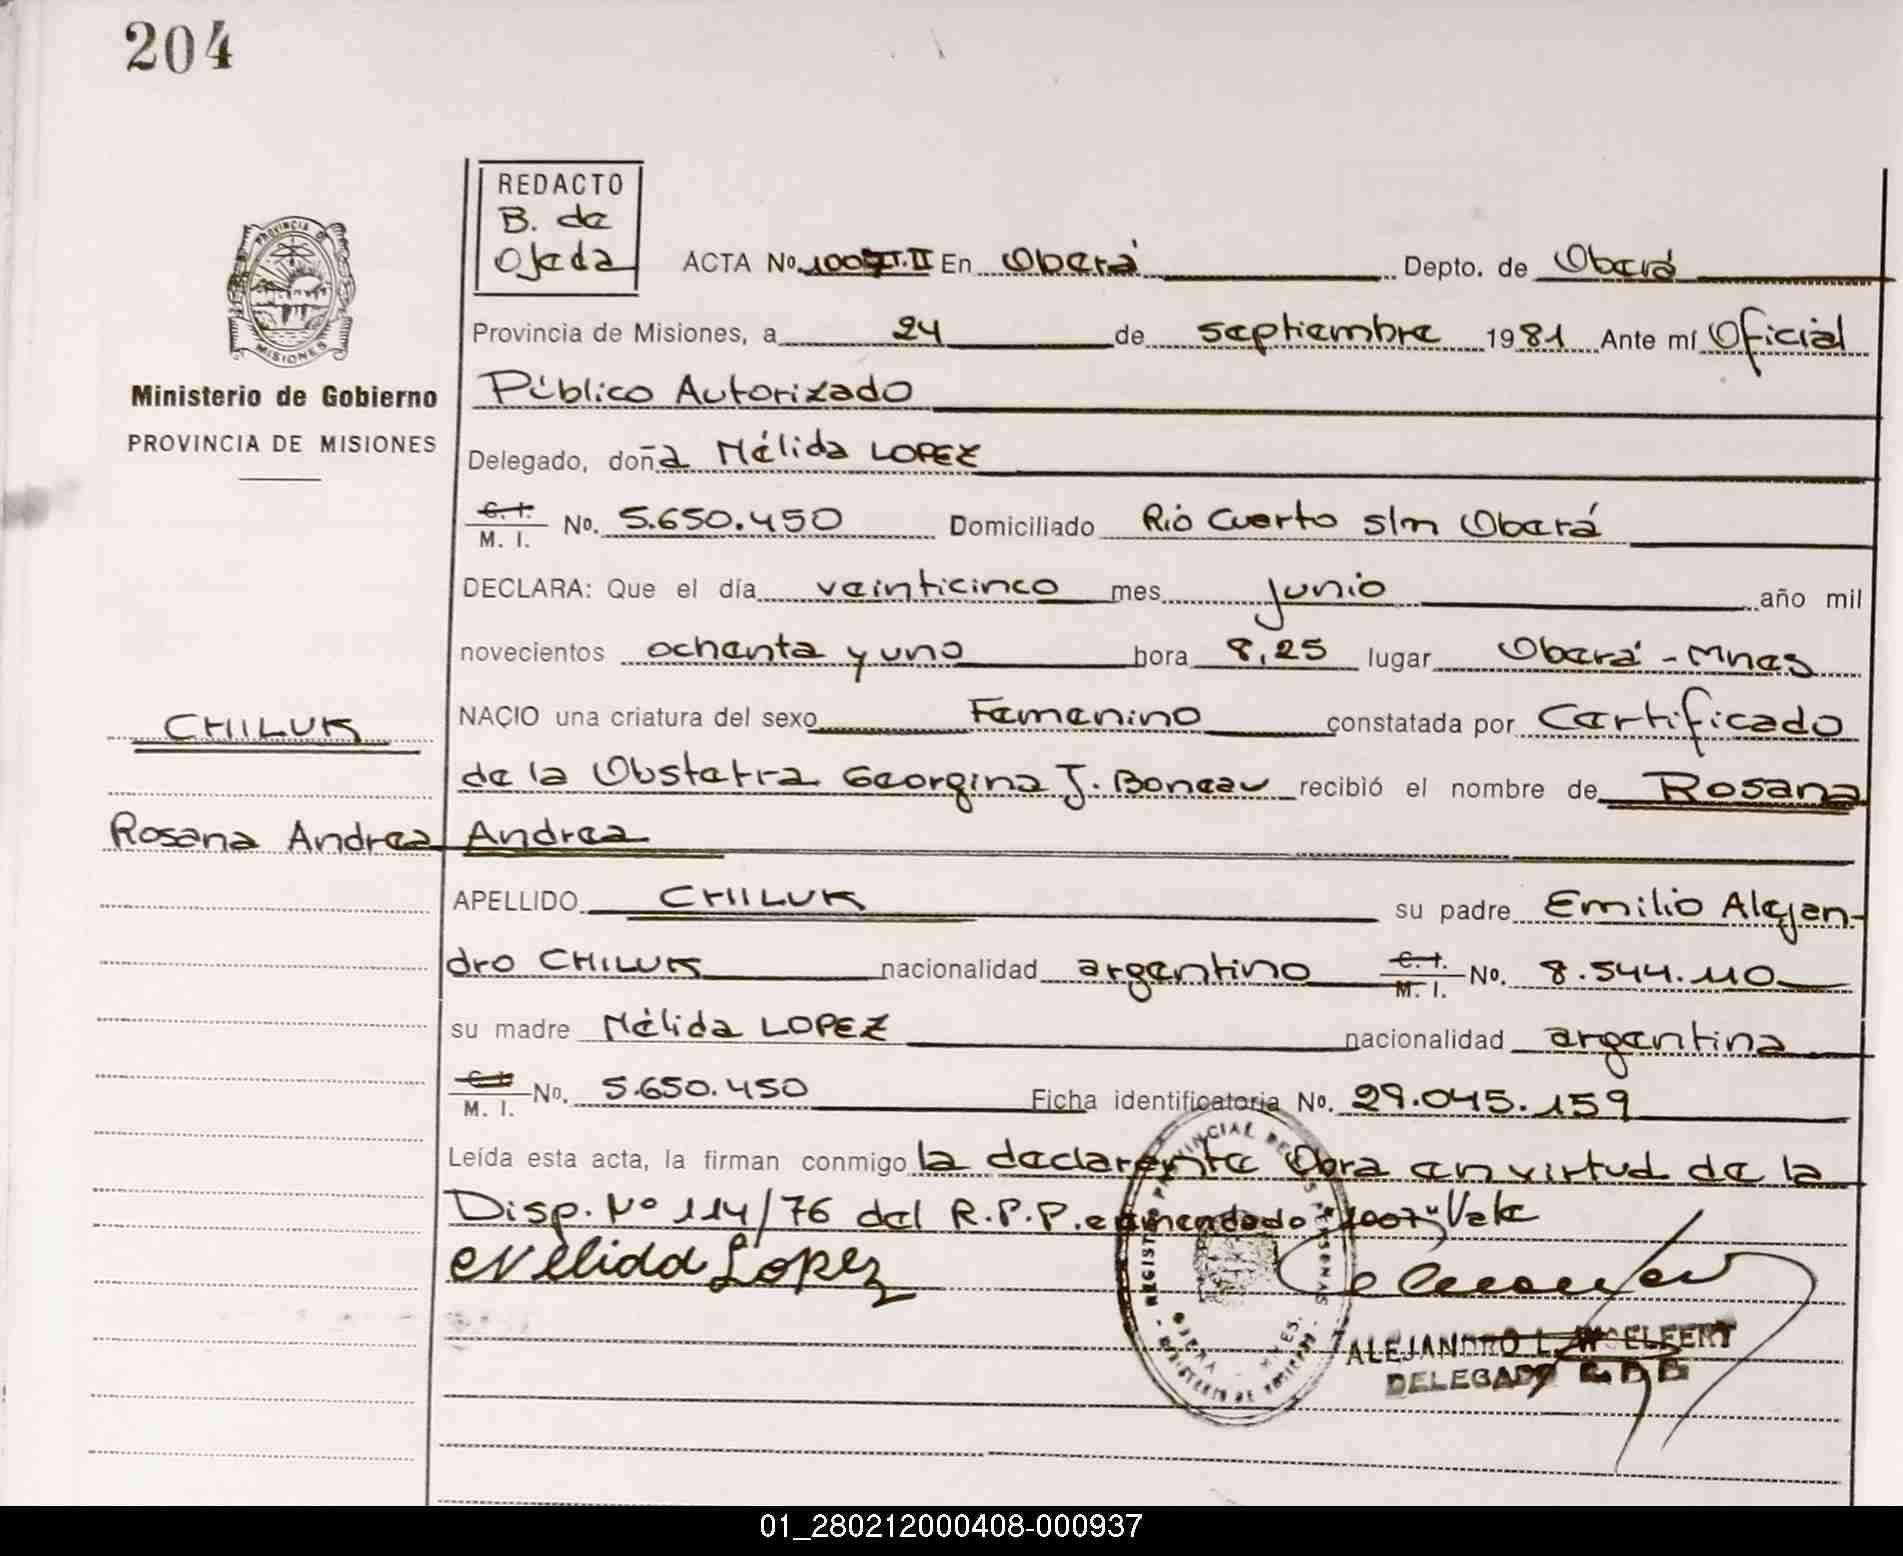 204
REDACTO
B. de
Ojeda
ACTA No. 1007 T.II En Oberá Depto. de Oberá
PROVINCIA DE
MISIONES
Ministerio de Gobierno
PROVINCIA DE MISIONES
Provincia de Misiones, a 24 de septiembre 1981 Ante mí Oficial
Público Autorizado
Delegado, doña Nélida LOPEZ
C. I.
M. I. No. 5.650.450 Domiciliado Rió Cuarto s/n Oberá
DECLARA: Que el día veinticinco mes junio año mil
novecientos ochenta y uno hora 8,25 lugar Oberá - Mnes
CHILUK
NACIO una criatura del sexo Femenino constatada por Certificado
de la Obstetra Georgina J. Boneau recibió el nombre de Rosana
Rosana Andrea
Andrea
APELLIDO CHILUK su padre Emilio Alejan-
dro CHILUK nacionalidad argentino C. I.
M. I. No. 8.544.110
su madre Nélida LOPEZ nacionalidad argentina
C. I.
M. I. No. 5.650.450 Ficha identificatoria No. 29.045.159
Leída esta acta, la firman conmigo la declarente Obra en virtud de la
Disp. Nº 114/76 del R.P.P. enmendado "1007" Vale
Nelida Lopez
REGISTRO PROVINCIAL DE LAS PERSONAS
OBERA MNES.
MINISTERIO DE GOBIERNO
ALEJANDRO L.
DELEGADO
01_280212000408-000937